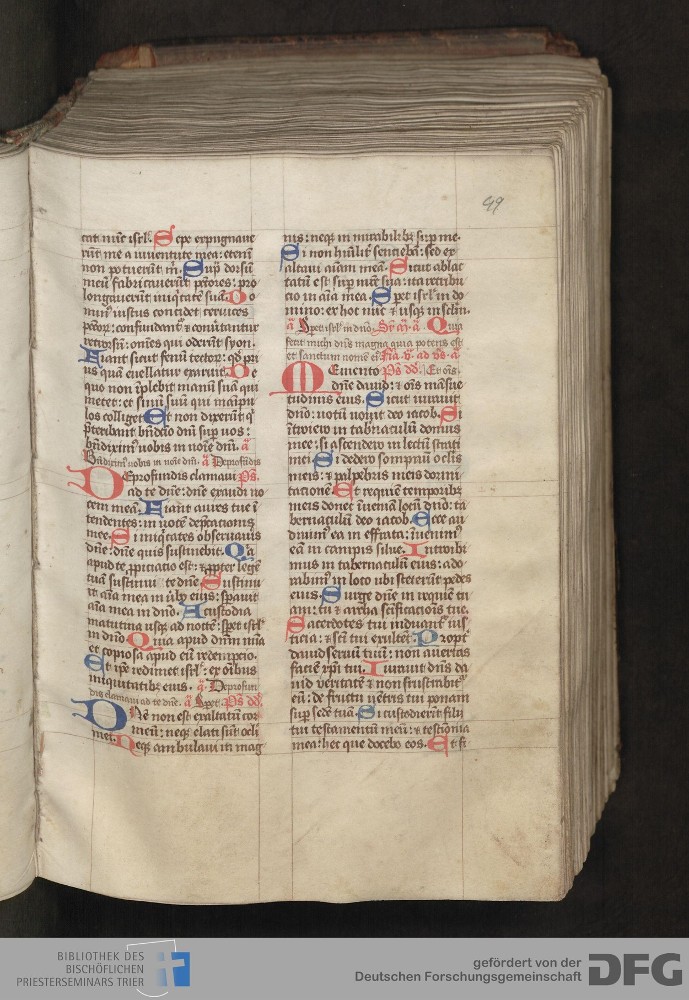 99
cat nūc isrl̄. Sepe expugnaue
rūt me a iuuentute mea: etenī
non potuerūt m̄. Sup̄ dorsū
meū fabricauerūt pctōres: pro
longauerūt iniq̄tatē suā. Do
minꝰ iustus concidet ceruices
pctōꝝ: confundantᷣ ⁊ conūtantur
retrorsū: omēs qui oderūt syon.
Fiant sicut fenū tectoꝝ: qḋ pri
us quā euellatur exaruit. De
quo non īplebit manū suā qui
metet: et sinū suū qui manipu
los colliget. Et non dixerūt q̄
p̄teribant bn̄dictio dnī sup̄ uos:
bn̄diximꝰ uobis in noīe dnī. a̅
Bn̄diximꝰ uobis in noīe dnī. a̅ De profūdis
De profundis clamaui Ps̄.
ad te dn̄e: dn̄e exaudi uo
cem meā. Fiant aures tue ī
tendentes: in uocē dep̄cationis
mee. Si iniq̄tates obseruaūis
dn̄e: dn̄e quis sustinebit. Q'a
apud te ꝓpiciatio est: ⁊ ꝓpter legē
tuā sustinui te dn̄e. Sustinu
it aīa mea in ūbo eius: sꝑauit
aīa mea in dnō. A custodia
matutina usqꝫ ad noctē: sꝑet isrl̄
in dnō. Quia apud dnm̄ mīa
et copiosa apud eū redempcio.
Et ip̄e redimet isrl̄: ex oībus
iniquitatibꝫ eius. a̅. De profun
dis clamaui ad te dn̄e. a̅ Sꝑet. Ps̄ dd̄.
Dn̄e non est exaltatū cor
meū: neqꝫ elati sūt ocl̄i
mei. Neqꝫ ambulaui in mag
nis: neqꝫ in mirabilibꝫ sup̄ me.
Si non hūilit̄ sentiebā: sed ex
altaui aīam meā. Sicut ablac
tatū est sup̄ mr̄e sua: ita retribu
cio in aīa mea. Sꝑet isrl̄ in do
mino: ex hoc nūc ⁊ usqꝫ in sclm̄.
a̅ Sꝑet isrl̄ in dnō. a̅. Quia
fecit michi dn̄s magna quia potens est
et sanctum nomē eꝰ.
Memento Ps̄ dd̄. Et oīs.
dn̄e dauid: ⁊ oīs māsue
tudinis eius. Sicut iurauit
dnō: uotū uouit deo iacob. Si
ītroiero in tabnaculū domus
mee: si ascendero in lectū strati
mei. Si dedero sompnū oc̄lis
meis: ⁊ palpebris meis dormi
tacionē. Et requiē temporibꝫ
meis donec īueniā locū dnō: ta
bernaculū deo iacob. Ecce au
diuimꝰ ea in effrata: īuenimꝰ
eā in campis silue. Introibi
mus in tabernaculū eius: ado
rabimꝰ in loco ubi steterūt pedes
eius. Surge dn̄e in requiē tu
am: tu ⁊ archa sc̄ificatiōis tue.
Sacerdotes tui induantᷣ ius
ticia: ⁊ sc̄i tui exultēt. Propt̄
dauid seruū tuū: non auertas
faciē xp̄i tui. Iurauit dn̄s da
uid ueritatē ⁊ non frustrabitᷣ
eū: de fructu uētris tui ponam
sup̄ sedē tuā. Si custodierīt filij
tui testamentū meū: ⁊ testiōnia
mea: hec que docebo eos. Et fi
BIBLIOTHEK DES
BISCHÖFLICHEN
PRIESTERSEMINARS TRIER
gefördert von der
Deutschen Forschungsgemeinschaft
DFG